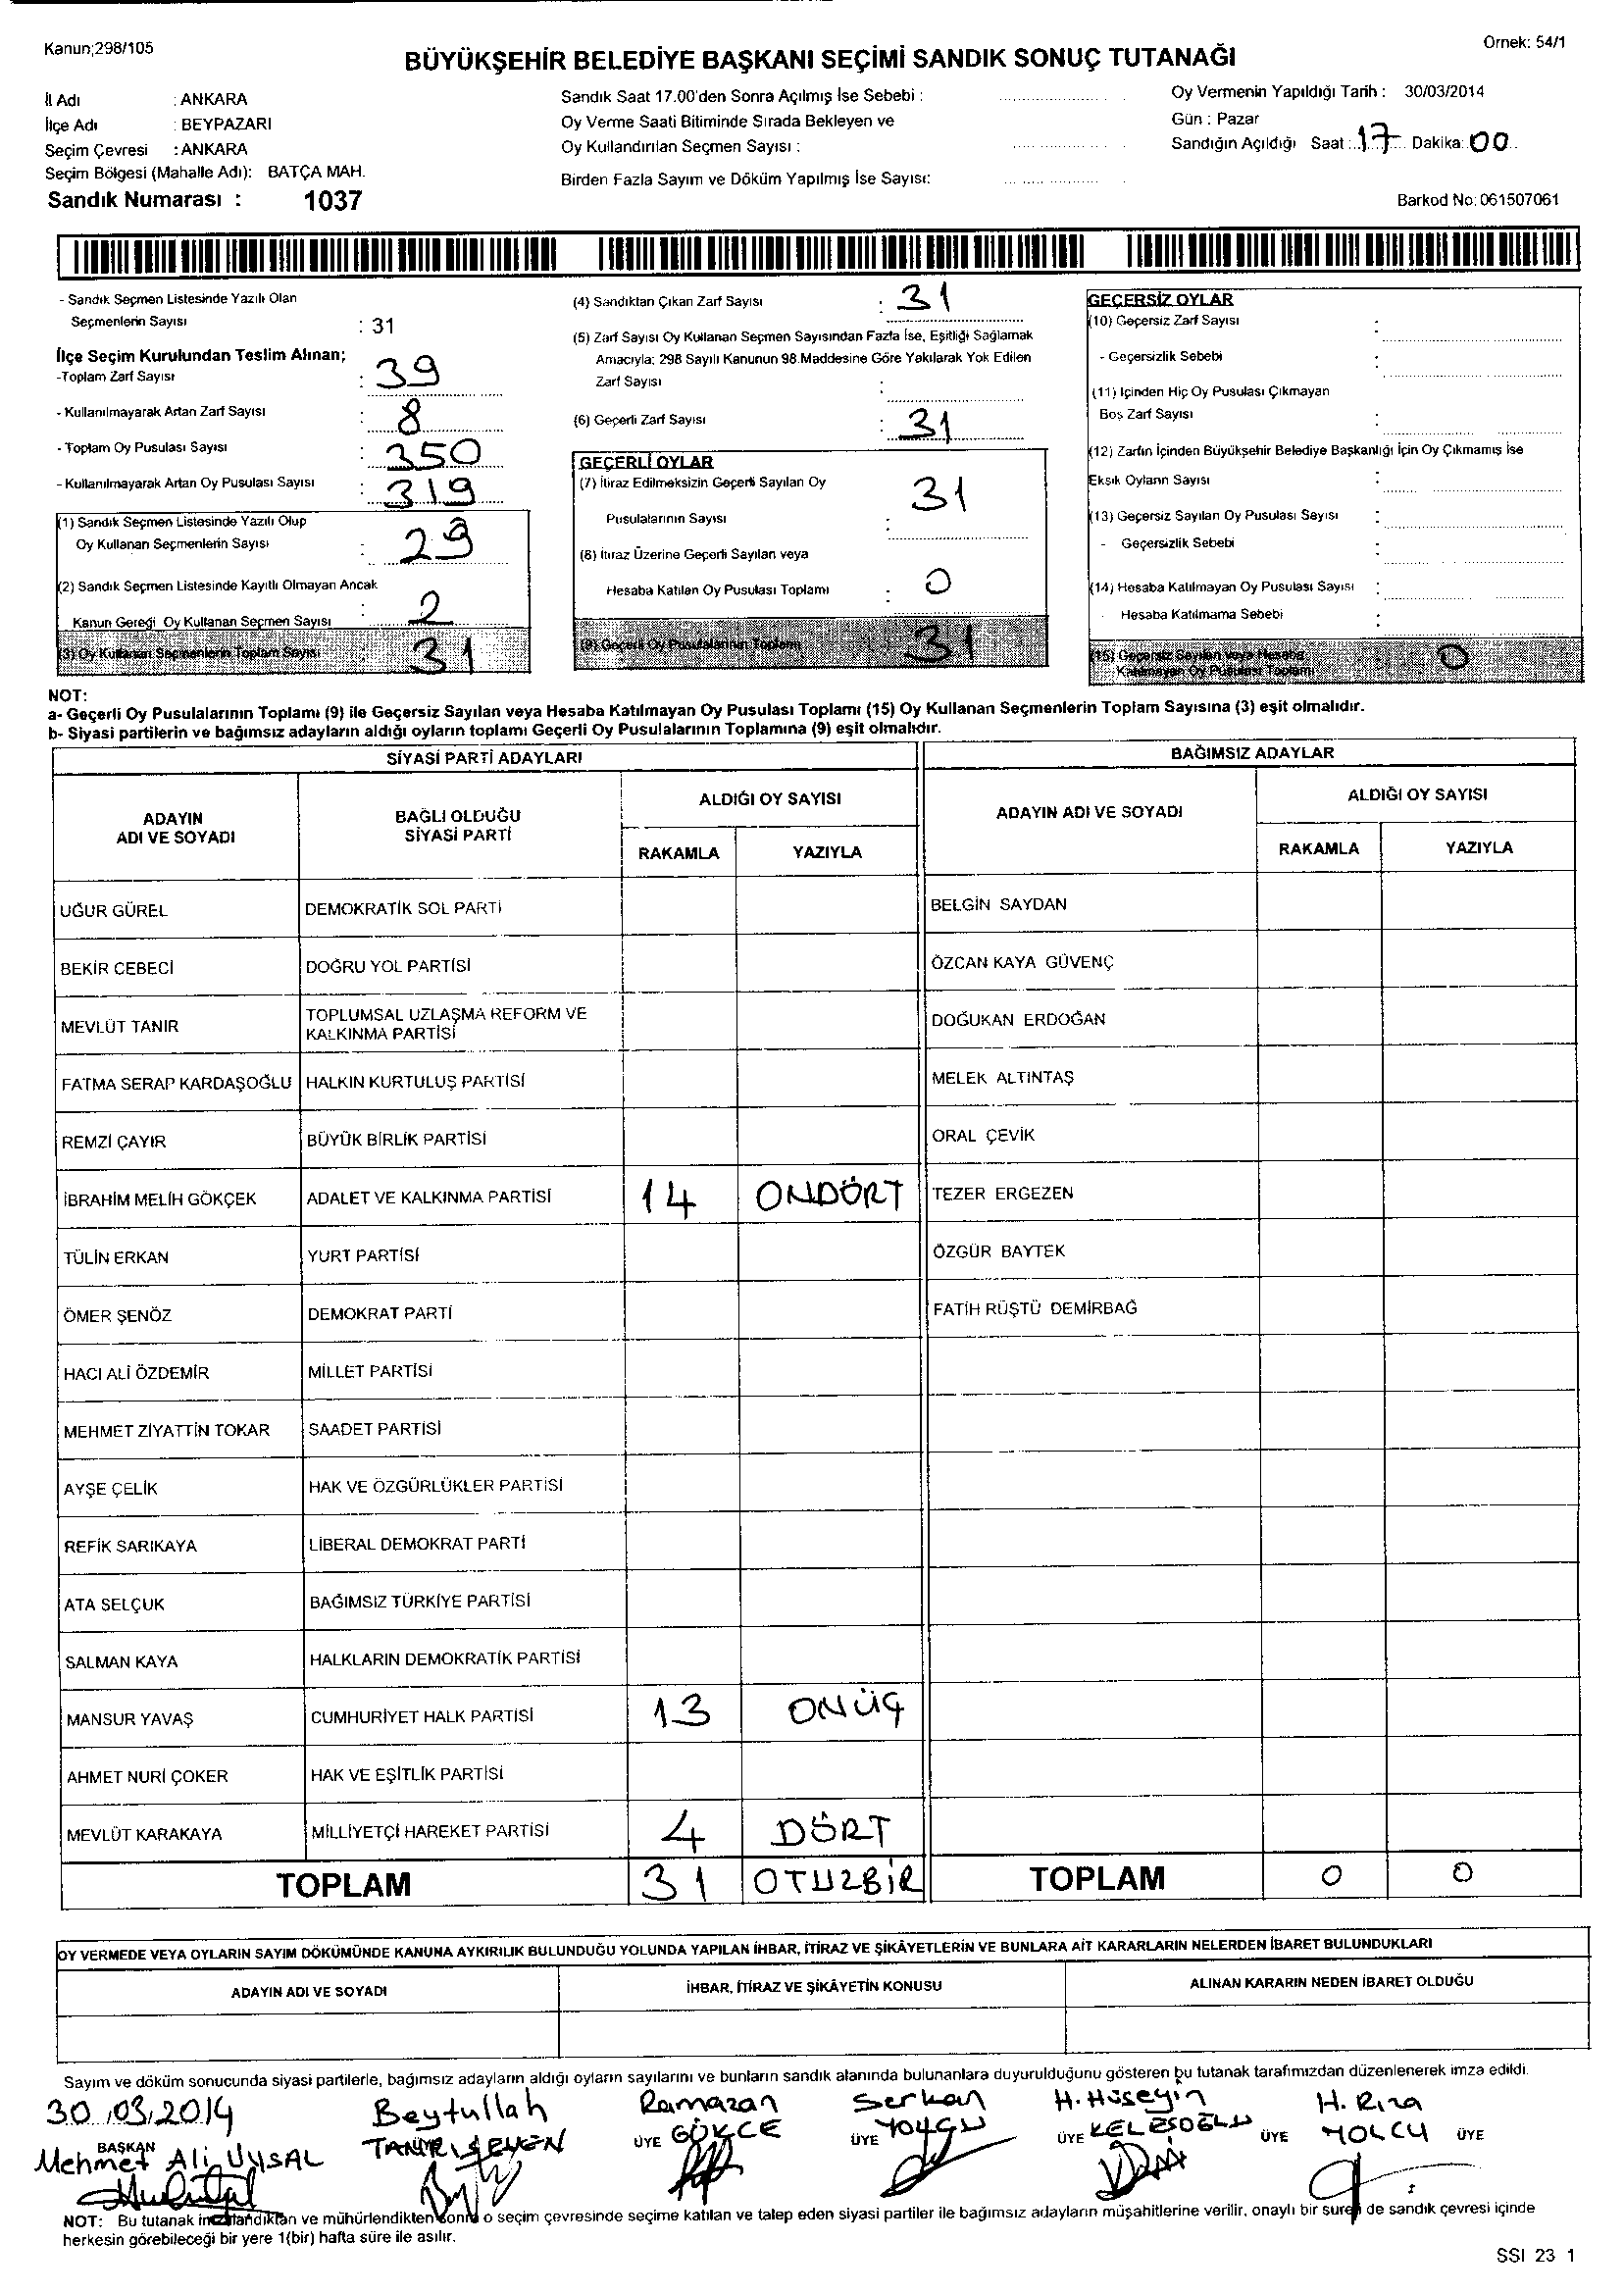 Kanun;298/105
Örnek: 54/1
BÜYÜKŞEHİR BELEDİYE BAŞKANI SEÇİMİ SANDIK SONUÇ TUTANAĞI
İl Adı : ANKARA
İlçe Adı : BEYPAZARI
Seçim Çevresi : ANKARA
Seçim Bölgesi (Mahalle Adı): BATÇA MAH.
Sandık Numarası : 1037
Sandık Saat 17.00'den Sonra Açılmış İse Sebebi :
Oy Verme Saati Bitiminde Sırada Bekleyen ve
Oy Kullandırılan Seçmen Sayısı :
Birden Fazla Sayım ve Döküm Yapılmış İse Sayısı:
Oy Vermenin Yapıldığı Tarih : 30/03/2014
Gün : Pazar
Sandığın Açıldığı Saat : 17 Dakika: 00
Barkod No: 061507061
- Sandık Seçmen Listesinde Yazılı Olan
Seçmenlerin Sayısı : 31
İlçe Seçim Kurulundan Teslim Alınan;
-Toplam Zarf Sayısı : 39
- Kullanılmayarak Artan Zarf Sayısı : 8
- Toplam Oy Pusulası Sayısı : 350
- Kullanılmayarak Artan Oy Pusulası Sayısı : 319
(1) Sandık Seçmen Listesinde Yazılı Olup
Oy Kullanan Seçmenlerin Sayısı : 29
(2) Sandık Seçmen Listesinde Kayıtlı Olmayan Ancak
Kanun Gereği Oy Kullanan Seçmen Sayısı : 2
(3) Oy Kullanan Seçmenlerin Toplam Sayısı 31
(4) Sandıktan Çıkan Zarf Sayısı : 31
(5) Zarf Sayısı Oy Kullanan Seçmen Sayısından Fazla İse, Eşitliği Sağlamak
Amacıyla; 298 Sayılı Kanunun 98.Maddesine Göre Yakılarak Yok Edilen
Zarf Sayısı :
(6) Geçerli Zarf Sayısı : 31
GEÇERLİ OYLAR
(7) İtiraz Edilmeksizin Geçerli Sayılan Oy
Pusulalarının Sayısı : 31
(8) İtiraz Üzerine Geçerli Sayılan veya
Hesaba Katılan Oy Pusulası Toplamı : 0
(9) Geçerli Oy Pusulalarının Toplamı 31
GEÇERSİZ OYLAR
(10) Geçersiz Zarf Sayısı :
- Geçersizlik Sebebi :
(11) İçinden Hiç Oy Pusulası Çıkmayan
Boş Zarf Sayısı :
(12) Zarfın İçinden Büyükşehir Belediye Başkanlığı İçin Oy Çıkmamış İse
Eksik Oyların Sayısı :
(13) Geçersiz Sayılan Oy Pusulası Sayısı :
- Geçersizlik Sebebi :
(14) Hesaba Katılmayan Oy Pusulası Sayısı :
- Hesaba Katılmama Sebebi :
(15) Geçersiz Sayılan veya Hesaba
Katılmayan Oy Pusulası Toplamı 0
NOT:
a- Geçerli Oy Pusulalarının Toplamı (9) ile Geçersiz Sayılan veya Hesaba Katılmayan Oy Pusulası Toplamı (15) Oy Kullanan Seçmenlerin Toplam Sayısına (3) eşit olmalıdır.
b- Siyasi partilerin ve bağımsız adayların aldığı oyların toplamı Geçerli Oy Pusulalarının Toplamına (9) eşit olmalıdır.
SİYASİ PARTİ ADAYLARI
BAĞIMSIZ ADAYLAR
ADAYIN
ADI VE SOYADI
BAĞLI OLDUĞU
SİYASİ PARTİ
ALDIĞI OY SAYISI
RAKAMLA YAZIYLA
ADAYIN ADI VE SOYADI
ALDIĞI OY SAYISI
RAKAMLA YAZIYLA
UĞUR GÜREL DEMOKRATİK SOL PARTİ BELGİN SAYDAN
BEKİR CEBECİ DOĞRU YOL PARTİSİ ÖZCAN KAYA GÜVENÇ
MEVLÜT TANIR TOPLUMSAL UZLAŞMA REFORM VE
KALKINMA PARTİSİ DOĞUKAN ERDOĞAN
FATMA SERAP KARDAŞOĞLU HALKIN KURTULUŞ PARTİSİ MELEK ALTINTAŞ
REMZİ ÇAYIR BÜYÜK BİRLİK PARTİSİ ORAL ÇEVİK
İBRAHİM MELİH GÖKÇEK ADALET VE KALKINMA PARTİSİ 14 ONDÖRT TEZER ERGEZEN
TÜLİN ERKAN YURT PARTİSİ ÖZGÜR BAYTEK
ÖMER ŞENÖZ DEMOKRAT PARTİ FATİH RÜŞTÜ DEMİRBAĞ
HACI ALİ ÖZDEMİR MİLLET PARTİSİ
MEHMET ZİYATTİN TOKAR SAADET PARTİSİ
AYŞE ÇELİK HAK VE ÖZGÜRLÜKLER PARTİSİ
REFİK SARIKAYA LİBERAL DEMOKRAT PARTİ
ATA SELÇUK BAĞIMSIZ TÜRKİYE PARTİSİ
SALMAN KAYA HALKLARIN DEMOKRATİK PARTİSİ
MANSUR YAVAŞ CUMHURİYET HALK PARTİSİ 13 ONÜÇ
AHMET NURİ ÇOKER HAK VE EŞİTLİK PARTİSİ
MEVLÜT KARAKAYA MİLLİYETÇİ HAREKET PARTİSİ 4 DÖRT
TOPLAM 31 OTUZBİR TOPLAM 0 0
OY VERMEDE VEYA OYLARIN SAYIM DÖKÜMÜNDE KANUNA AYKIRILIK BULUNDUĞU YOLUNDA YAPILAN İHBAR, İTİRAZ VE ŞİKÂYETLERİN VE BUNLARA AİT KARARLARIN NELERDEN İBARET BULUNDUKLARI
ADAYIN ADI VE SOYADI İHBAR, İTİRAZ VE ŞİKÂYETİN KONUSU ALINAN KARARIN NEDEN İBARET OLDUĞU
Sayım ve döküm sonucunda siyasi partilerle, bağımsız adayların aldığı oyların sayılarını ve bunların sandık alanında bulunanlara duyurulduğunu gösteren bu tutanak tarafımızdan düzenlenerek imza edildi.
30.03.2014 Beytullah Ramazan Serkan H.Hüseyin H. Rıza
BAŞKAN TANRISEVEN ÜYE GÖKCE ÜYE YOLCU ÜYE KELEŞOĞLU ÜYE YOLCU ÜYE
Mehmet Ali UYSAL
NOT: Bu tutanak imzalandıktan ve mühürlendikten sonra o seçim çevresinde seçime katılan ve talep eden siyasi partiler ile bağımsız adayların müşahitlerine verilir, onaylı bir sureti de sandık çevresi içinde
herkesin görebileceği bir yere 1(bir) hafta süre ile asılır.
SSI 23 1